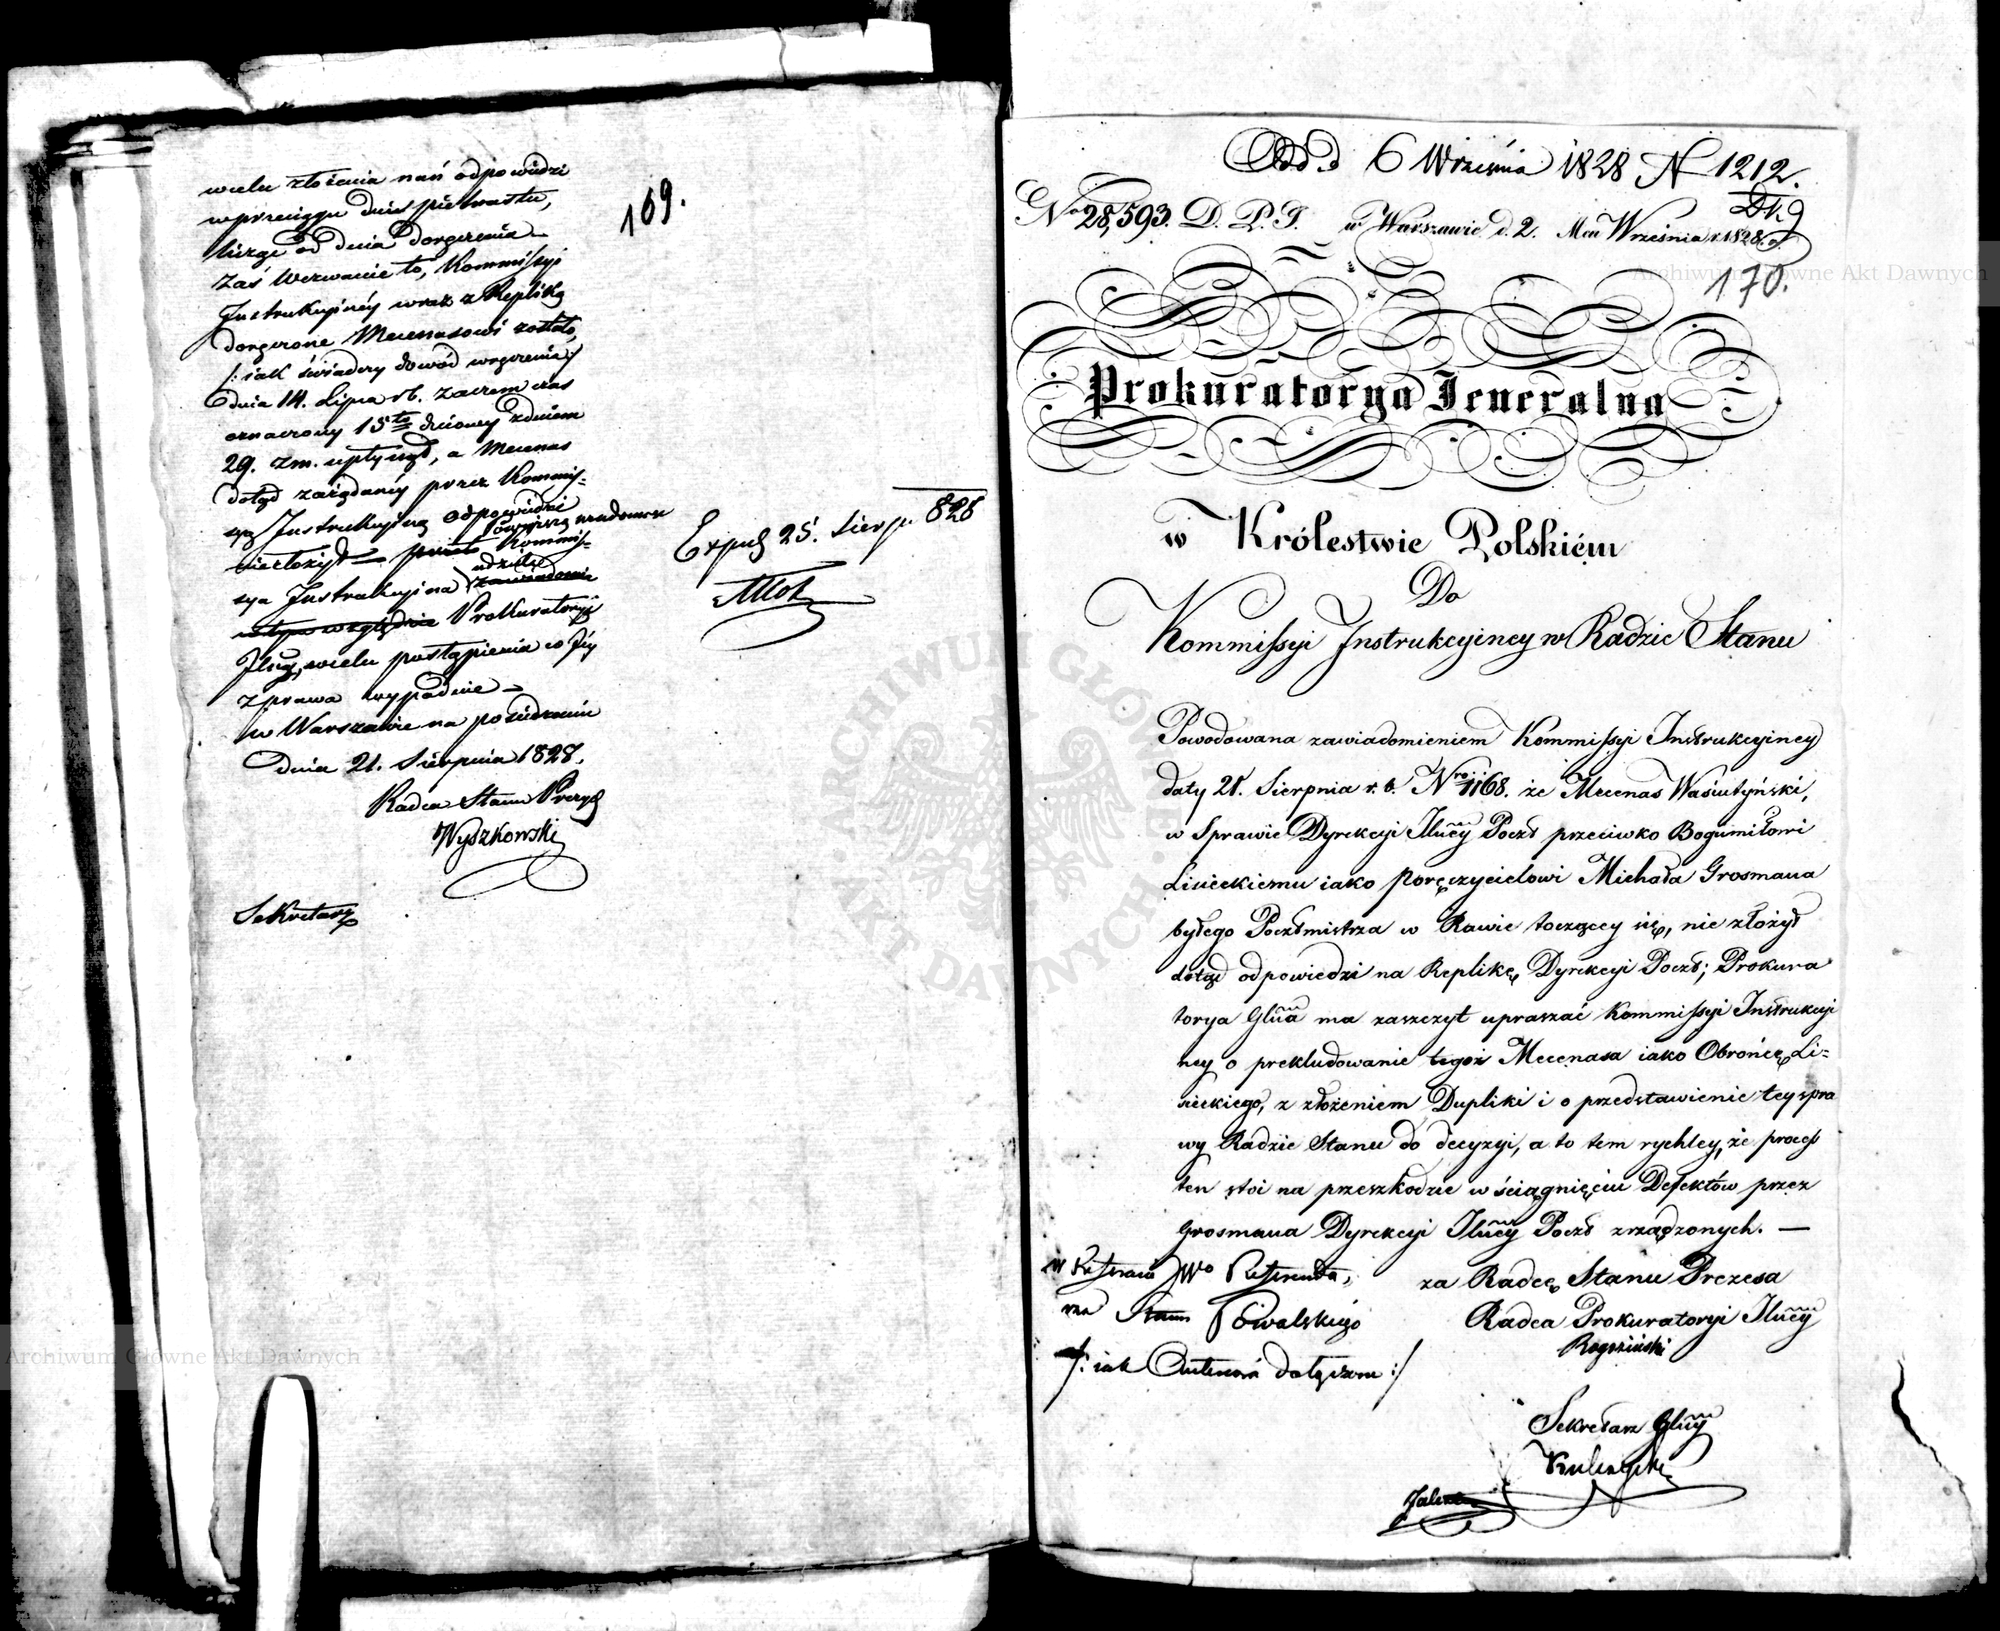 wcelu złożenia nań odpowiedzi
wprzeciągu dni piętnastu,
licząc od dnia doręczenia –
Zaś wezwanie to, Kommissyi
Instrukcyiney wraz z Repliką
doręczone Mecenasowi zostało,
/: iak świadczy dowód wręczenia :/
dnia 14. Lipca r.b. zaczem czas
oznaczony 15to dniowy z dniem
29. z.m. upłynął, a Mecenas
dotąd zażądaney przez Kommis=
syą Instrukcyiną odpowiedzi
niezłożył – przeto Kommis=
ninieyszą wiadomość
sya Instrukcyina zawiadomia
udziela
w tym względzie Prokuratoryi
Jlney, wcelu postąpienia co z tey
z prawa wypadnie –
w Warszawie na posiedzeniu
dnia 21. Sierpnia 1828.
Radca Stanu Prezyd
Wyszkowski
Sekretarz
169.
Exped 25. Sierp. 828
Odd. d 6 Września 1828 N 1212.
Nro 28,593. D. P. J. w Warszawie d. 2. Mca Września r. 1828. o
170.
Prokuratorya Jeneralna
w Królestwie Polskiém
Do
Kommissyi Instrukcyiney w Radzie Stanu
Powodowana zawiadomieniem Kommissyi Instrukcyiney
daty 21. Sierpnia r. b. Nro 1168. że Mecenas Wasiutyński,
w Sprawie Dyrekcyi Jlney Poczt przeciwko Bogumiłowi
Lisieckiemu iako Poręczycielowi Michała Grosmana
byłego Pocztmistrza w Rawie toczącey się, nie złożył
dotąd odpowiedzi na Replikę Dyrekcyi Poczt; Prokura
torya Glna ma zaszczyt upraszać Kommissyi Instrukcyi
ney o prekludowanie tegoż Mecenasa iako Obrońcę Li=
sieckiego, z złożeniem Dupliki i o przedstawienie tey spra
wy Radzie Stanu do decyzyi, a to tem rychley, że proceß
ten stoi na przeszkodzie w ściągnięciu Defektów przez
Grosmana Dyrekcyi Jlney Poczt zrządzonych. —
W Referacie JWo Referenda,
rza Stanu Kowalskiego
/: iak Anteriora dołączone :/
za Radcę Stanu Prezesa
Radca Prokuratoryi Jlney
Rogoziński
Sekretarz Glny
ARCHIWUM GŁÓWNE AKT DAWNYCH
Archiwum Główne Akt Dawnych
Archiwum Główne Akt Dawnych